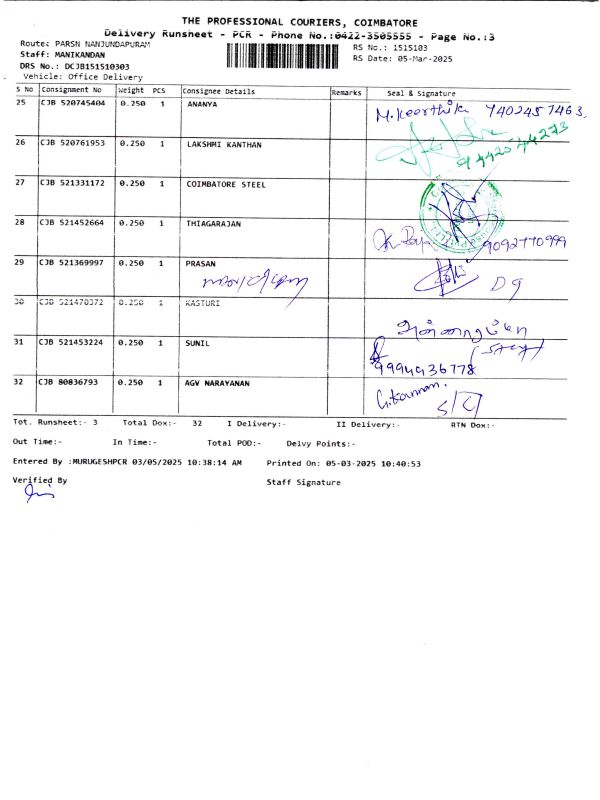 THE PROFESSIONAL COURIERS, COIMBATORE
Delivery Runsheet - PCR - Phone No.:0422-3505555 - Page No.:3
Route: PARSN NANJUNDAPURAM
RS No.: 1515103
Staff: MANIKANDAN
RS Date: 05-Mar-2025
DRS No.: DCJB151510303
Vehicle: Office Delivery
S No Consignment No Weight PCS Consignee Details Remarks Seal & Signature
25 CJB 520745404 0.250 1 ANANYA M.Keerthika 7402457463
26 CJB 520761953 0.250 1 LAKSHMI KANTHAN
27 CJB 521331172 0.250 1 COIMBATORE STEEL
28 CJB 521452664 0.250 1 THIAGARAJAN 9092770999
29 CJB 521369997 0.250 1 PRASAN
30 CJB 521470372 0.250 1 KASTURI
31 CJB 521453224 0.250 1 SUNIL 9994936778
32 CJB 80836793 0.250 1 AGV NARAYANAN G.Kannan.
Tot. Runsheet:- 3 Total Dox:- 32 I Delivery:- II Delivery:- RTN Dox:-
Out Time:- In Time:- Total POD:- Delvy Points:-
Entered By :MURUGESHPCR 03/05/2025 10:38:14 AM Printed On: 05-03-2025 10:40:53
Verified By Staff Signature